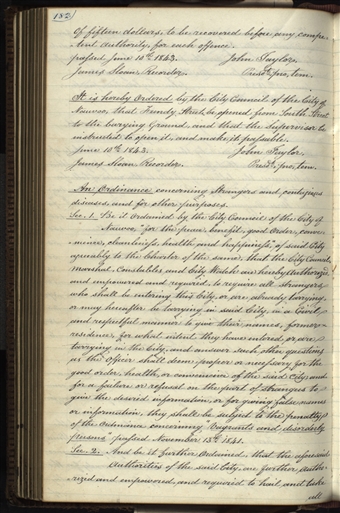 182
of fifteen dollars, to be recovered before any compe-
tent authority, for each offence.
passed June 10th 1843. John Taylor,
James Sloan Recorder. Presdt. pro, tem.
It is hereby Ordered by the City Council of the City of
Nauvoo, that Street, be opened from South Street
to the burying Ground, and that the Supervisor be
instructed to open it, and make it passable.
June 10th 1843. John Taylor,
James Sloan Recorder. Presdt. pro, tem.
An Ordinance concerning Strangers and contagious
diseases, and for other purposes.
Sec. 1. Be it Ordained by the City Council of the City of
Nauvoo, "for the peace, benefit, good Order, conve-
nience, cleanliness, health and happiness," of said City
agreeably to the Charter of the same, that the City Council,
Marshal, Constables, and City Watch are hereby Authorized
and empowered and required, to require all Strangers
who shall be entering this City, or are already tarrying,
or may hereafter be tarrying in said City, in a Civil
and respectful manner to give their names, former
residence, for what intent they have entered, or are
tarrying in the City, and answer such other questions
as the Officer shall deem proper or necessary, for the
good order, health, or convenience of the said City; and
for a failure or refusal on the part of Strangers to
give the desired information, or for giving false names
or information, they shall be subject to the penalty
of the Ordinance concerning "Vagrants and disorderly
persons" passed November 13th 1841.
Sec. 2. And be it further Ordained, that the aforesaid
Authorities of the said City, are further autho-
rized and empowered, and required to hail and take
all